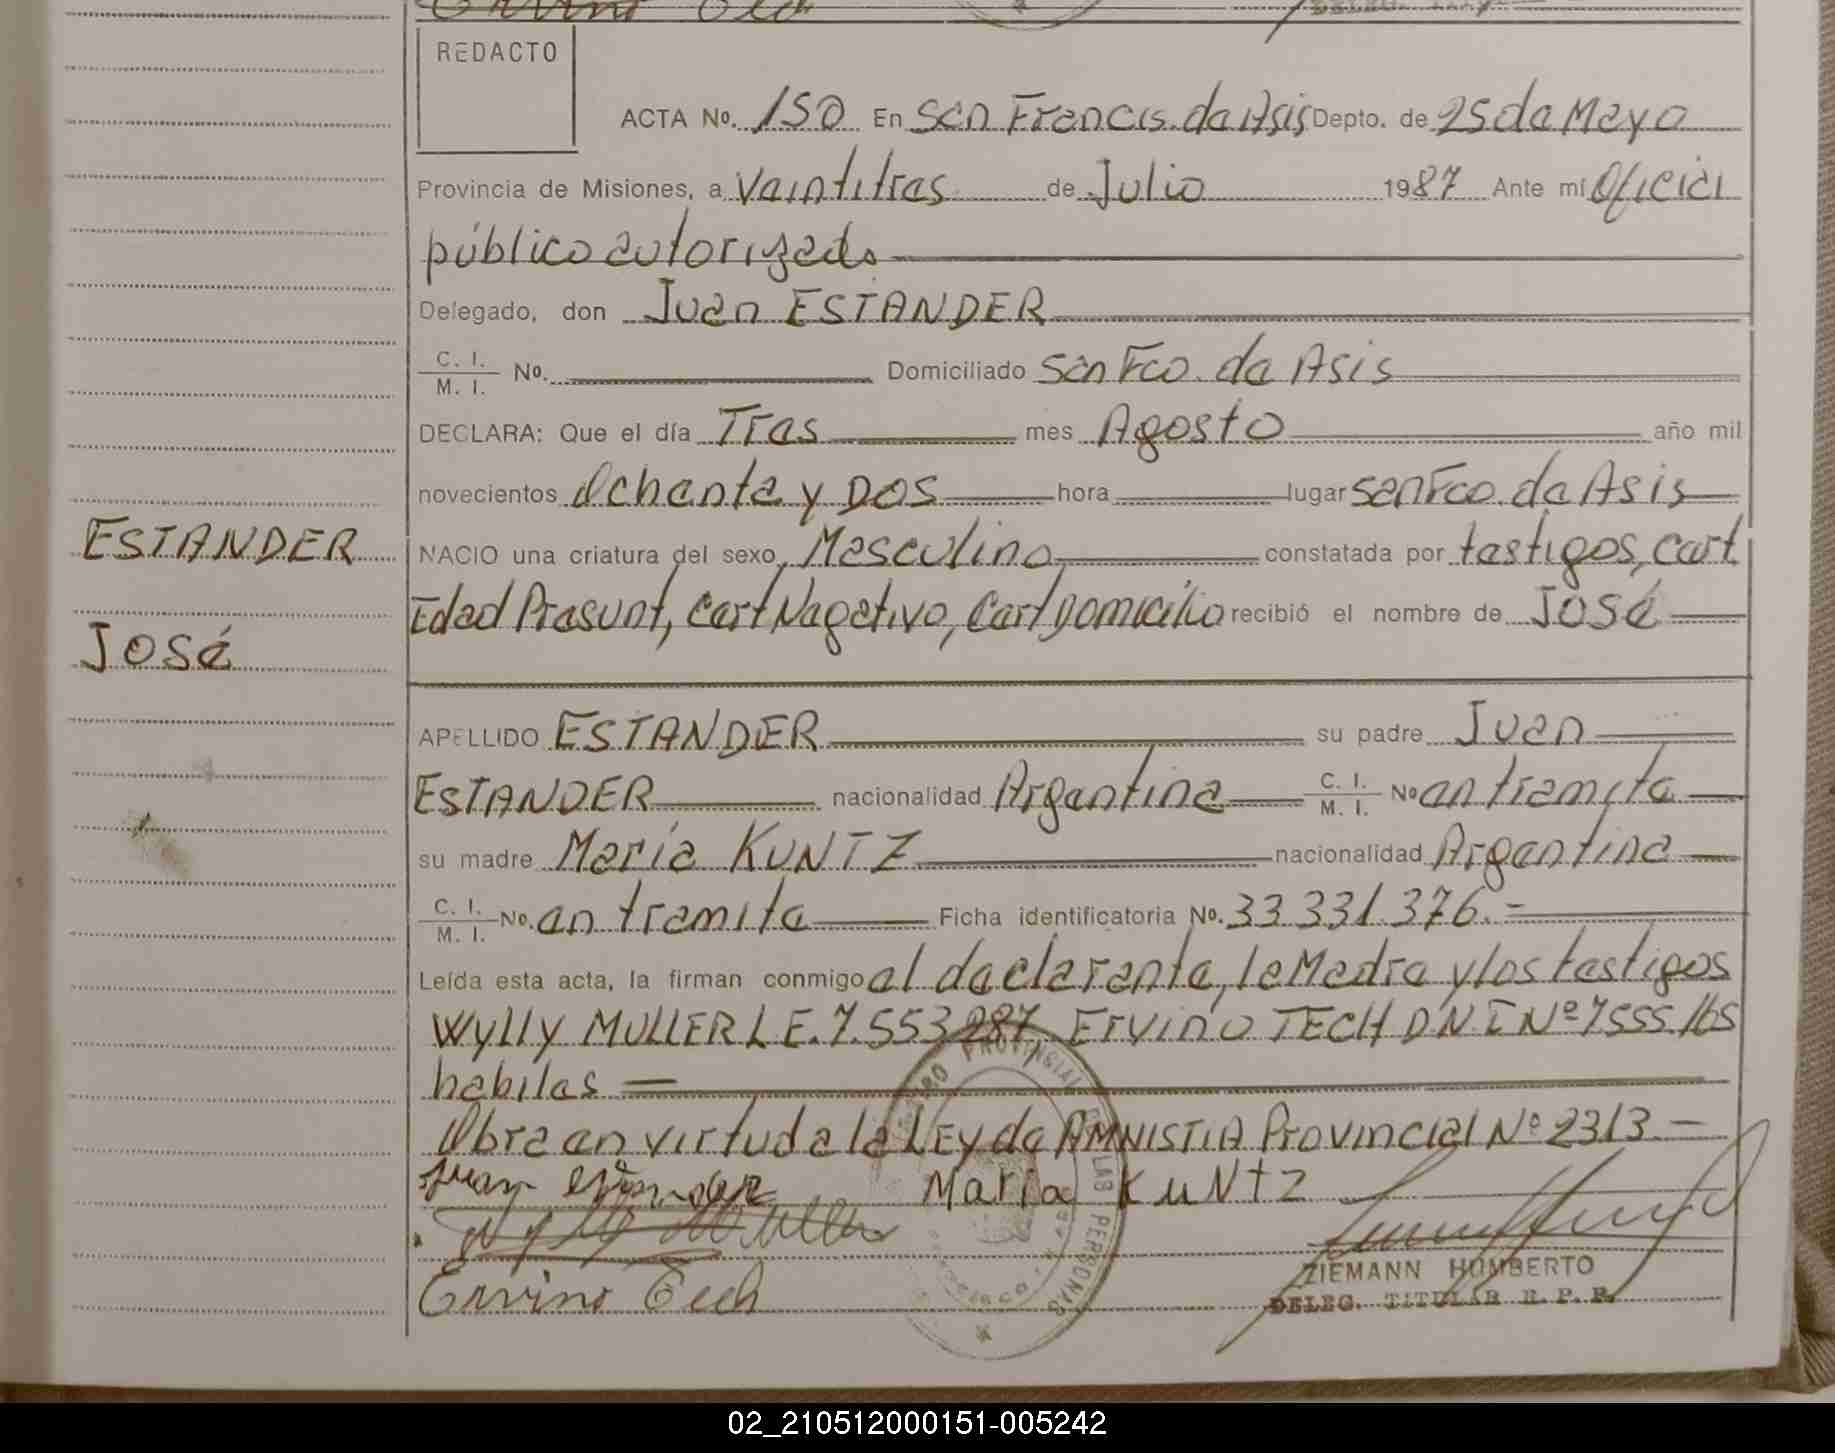 REDACTO
ACTA No. 150 En San Francis. de Asis Depto. de 25 de Mayo
Provincia de Misiones, a Veintitres de Julio 1987 Ante mí Oficial
público autorizado
Delegado, don Juan ESTANDER
C. I. / M. I. No. Domiciliado San Fco. de Asis
DECLARA: Que el día Tres mes Agosto año mil
novecientos Ochenta y DOS hora lugar San Fco. de Asis
ESTANDER
NACIO una criatura del sexo Masculino constatada por testigos, cert
Edad Presunt, cert Negativo, Cert Domicilio recibió el nombre de José
José
APELLIDO ESTANDER su padre Juan
ESTANDER nacionalidad Argentina C. I. / M. I. No en tramite
su madre María KUNTZ nacionalidad Argentina
C. I. / M. I. No. en tramite Ficha identificatoria No. 33 331.376.-
Leída esta acta, la firman conmigo el declarante, la Madre y los testigos
Wylly MULLER L E. 7.553 287, Ervino TECH D N I Nº 7555.165
habiles
Obra en virtud a la LEy de AMNISTIA Provincial Nº 2313.-
Juan Maria KuNtz
Muller
Ervino Tech
ZIEMANN HUMBERTO
DELEG. TITULAR R. P. P.
PROVINCIAL DE LAS PERSONAS
02_210512000151-005242